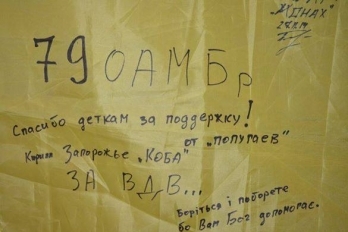 "ДНАХ"
79 ОАМБр
Спасибо деткам за поддержку!
от "попугаев"
Кирилл Запорожье "КОБА"
ЗА ВДВ...
Боріться і поборете
бо Вам Бог допомагає.